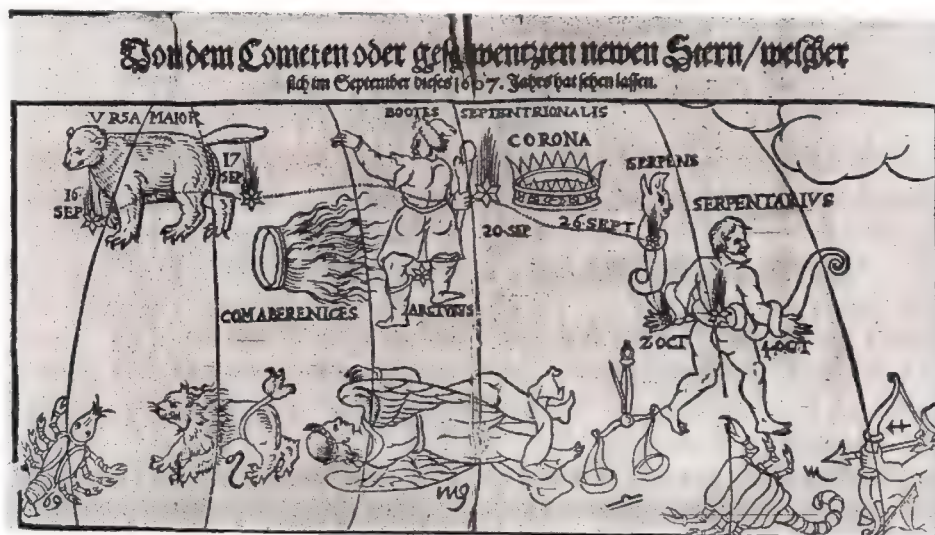 Von dem Cometen oder geschwentzten newen Stern/ welcher
sich im September dieses 1607. Jahrs hat sehen lassen.
VRSA MAIOR
BOOTES SEPTENTRIONALIS
CORONA
SERPENS
17
SEP
16
SEP
SERPENTARIVS
20·SEP
26·SEPT
COMABERENICES
ARCTVRVS
2 OCT
4·OCT